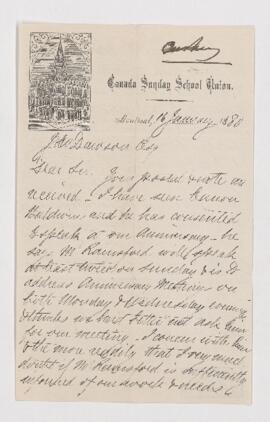 Canada Sunday School Union.
Montreal, 16 January 1880
J W Dawson Esq
Dear Sir. Your postal & note are
received – I have seen Canon
Baldwin and he has consented
to speak at our Anniversary – he
says Mr Rainsford will speak
at least twice on Sunday & is to
address Anniversary Meetings on
both Monday & Wednesday evening
& thinks we had better not ask him
for our meeting – I concur with him
& the more readily that I very much
doubt if Mr Rainsford is sufficiently
informed of our work & needs to